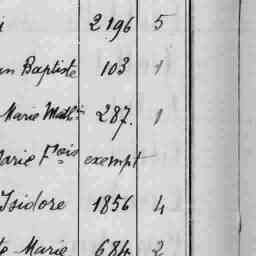 2196 5
Baptiste 103 1
Marie Math.in 287. 1
Marie F.ois exempt
Isidore 1856 4
Marie 684 2